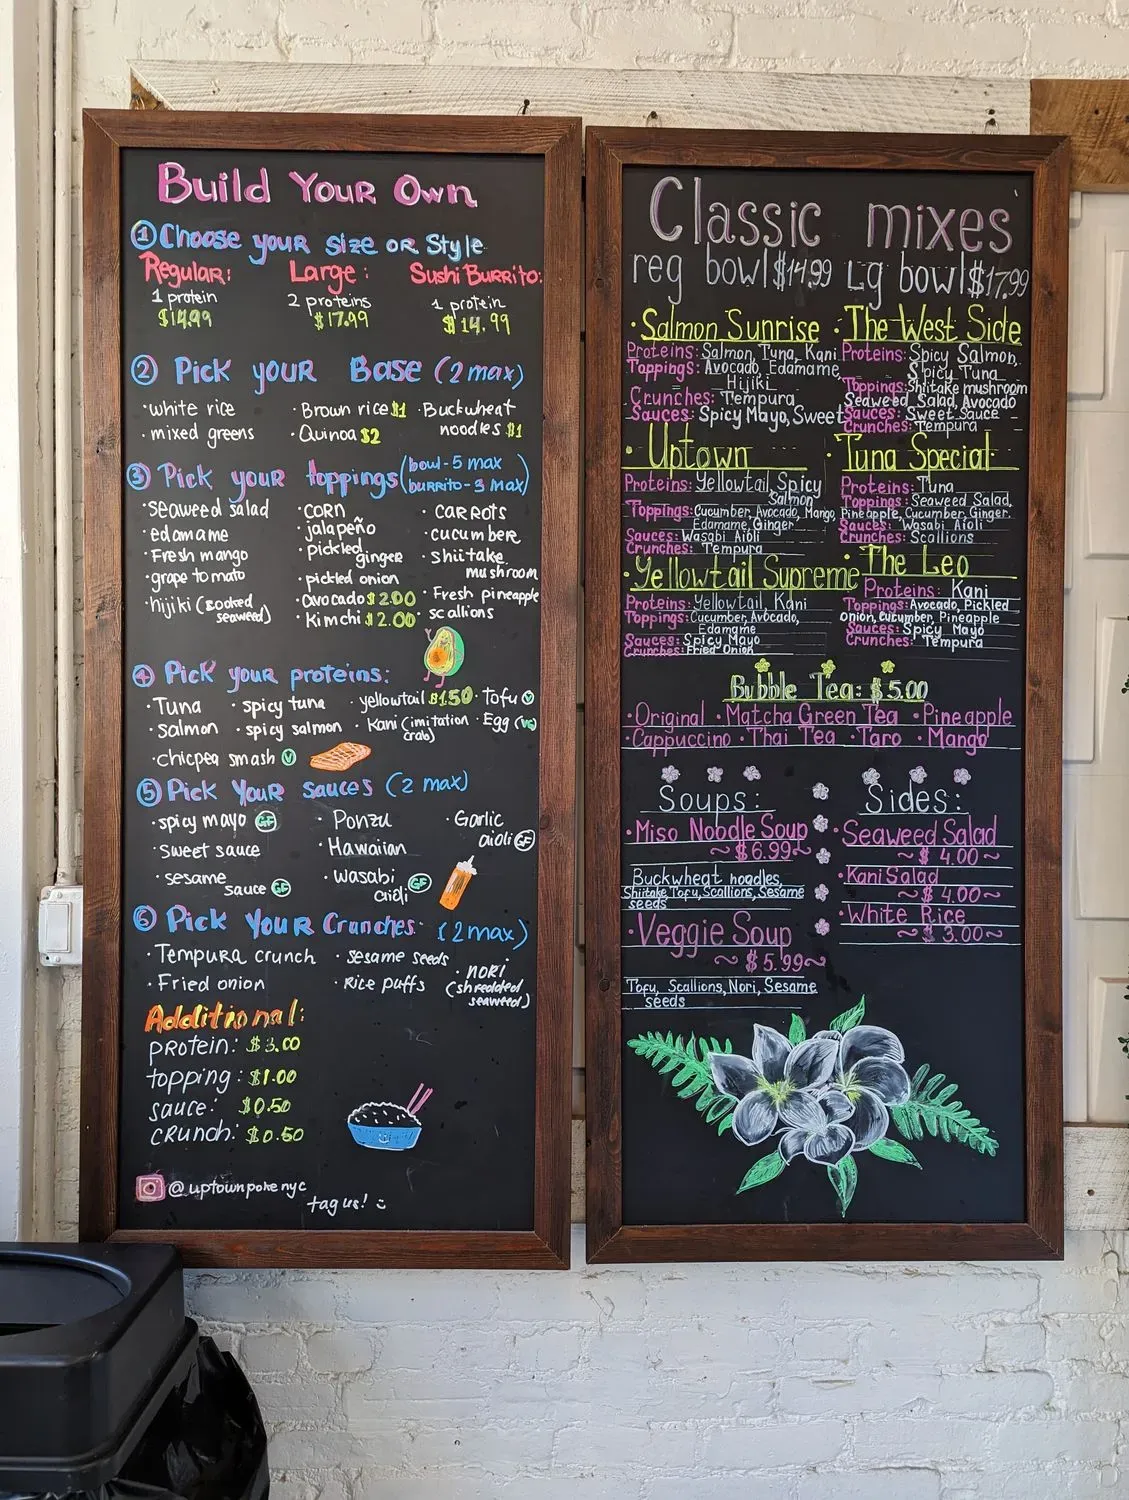 Build Your Own
① Choose your size or Style
Regular: Large: Sushi Burrito:
1 protein 2 proteins 1 protein
$14.99 $17.99 $14.99
② Pick your Base (2 max)
·white rice ·Brown rice $1 ·Buckwheat
·mixed greens ·Quinoa $2 noodles $1
③ Pick your toppings (bowl-5 max
burrito-3 max)
·seaweed salad ·corn ·carrots
·edamame ·jalapeño ·cucumber
·Fresh mango ·pickled ginger ·shiitake
·grape tomato ·pickled onion mushroom
·hijiki (cooked ·avocado $2.00 ·Fresh pineapple
seaweed) ·Kimchi $2.00 ·scallions
④ Pick your proteins:
·Tuna ·spicy tuna ·yellowtail $1.50 ·Tofu Ⓥ
·Salmon ·spicy salmon ·Kani (imitation ·Egg (VG)
crab)
·chicpea smash Ⓥ
⑤ Pick Your sauces (2 max)
·spicy mayo GF ·Ponzu ·Garlic
aioli GF
·sweet sauce ·Hawaiian
·sesame ·wasabi
sauce GF aioli GF
⑥ Pick Your Crunches: (2 max)
·Tempura crunch ·sesame seeds ·nori
·Fried onion ·Rice puffs (shredded
seaweed)
Additional:
protein: $3.00
topping: $1.00
sauce: $0.50
crunch: $0.50
@uptownpokenyc
tag us!
Classic mixes
reg bowl $14.99 Lg bowl $17.99
·Salmon Sunrise
Proteins: Salmon, Tuna, Kani
Toppings: Avocado, Edamame,
Hijiki
Crunches: Tempura
Sauces: Spicy Mayo, Sweet
·The West Side
Proteins: Spicy Salmon,
Spicy Tuna
Toppings: Shiitake mushroom
Seaweed Salad, Avocado
Sauces: Sweet Sauce
Crunches: Tempura
·Uptown
Proteins: Yellowtail, Spicy
Salmon
Toppings: Cucumber, Avocado, Mango,
Edamame, Ginger
Sauces: Wasabi Aioli
Crunches: Tempura
·Tuna Special
Proteins: Tuna
Toppings: Seaweed Salad,
Pineapple, Cucumber, Ginger,
Sauces: Wasabi Aioli
Crunches: Scallions
·Yellowtail Supreme
Proteins: Yellowtail, Kani
Toppings: Cucumber, Avocado,
Edamame
Sauces: Spicy Mayo
Crunches: Fried Onion
·The Leo
Proteins: Kani
Toppings: Avocado, Pickled
Onion, Cucumber, Pineapple
Sauces: Spicy Mayo
Crunches: Tempura
Bubble Tea: $5.00
·Original ·Matcha Green Tea ·Pineapple
·Cappuccino ·Thai Tea ·Taro ·Mango
Soups:
·Miso Noodle Soup
~$6.99~
Buckwheat noodles,
Shiitake, Tofu, Scallions, Sesame
seeds
·Veggie Soup
~$5.99~
Tofu, Scallions, Nori, Sesame
seeds
Sides:
·Seaweed Salad
~$4.00~
·Kani Salad
~$4.00~
·White Rice
~$3.00~